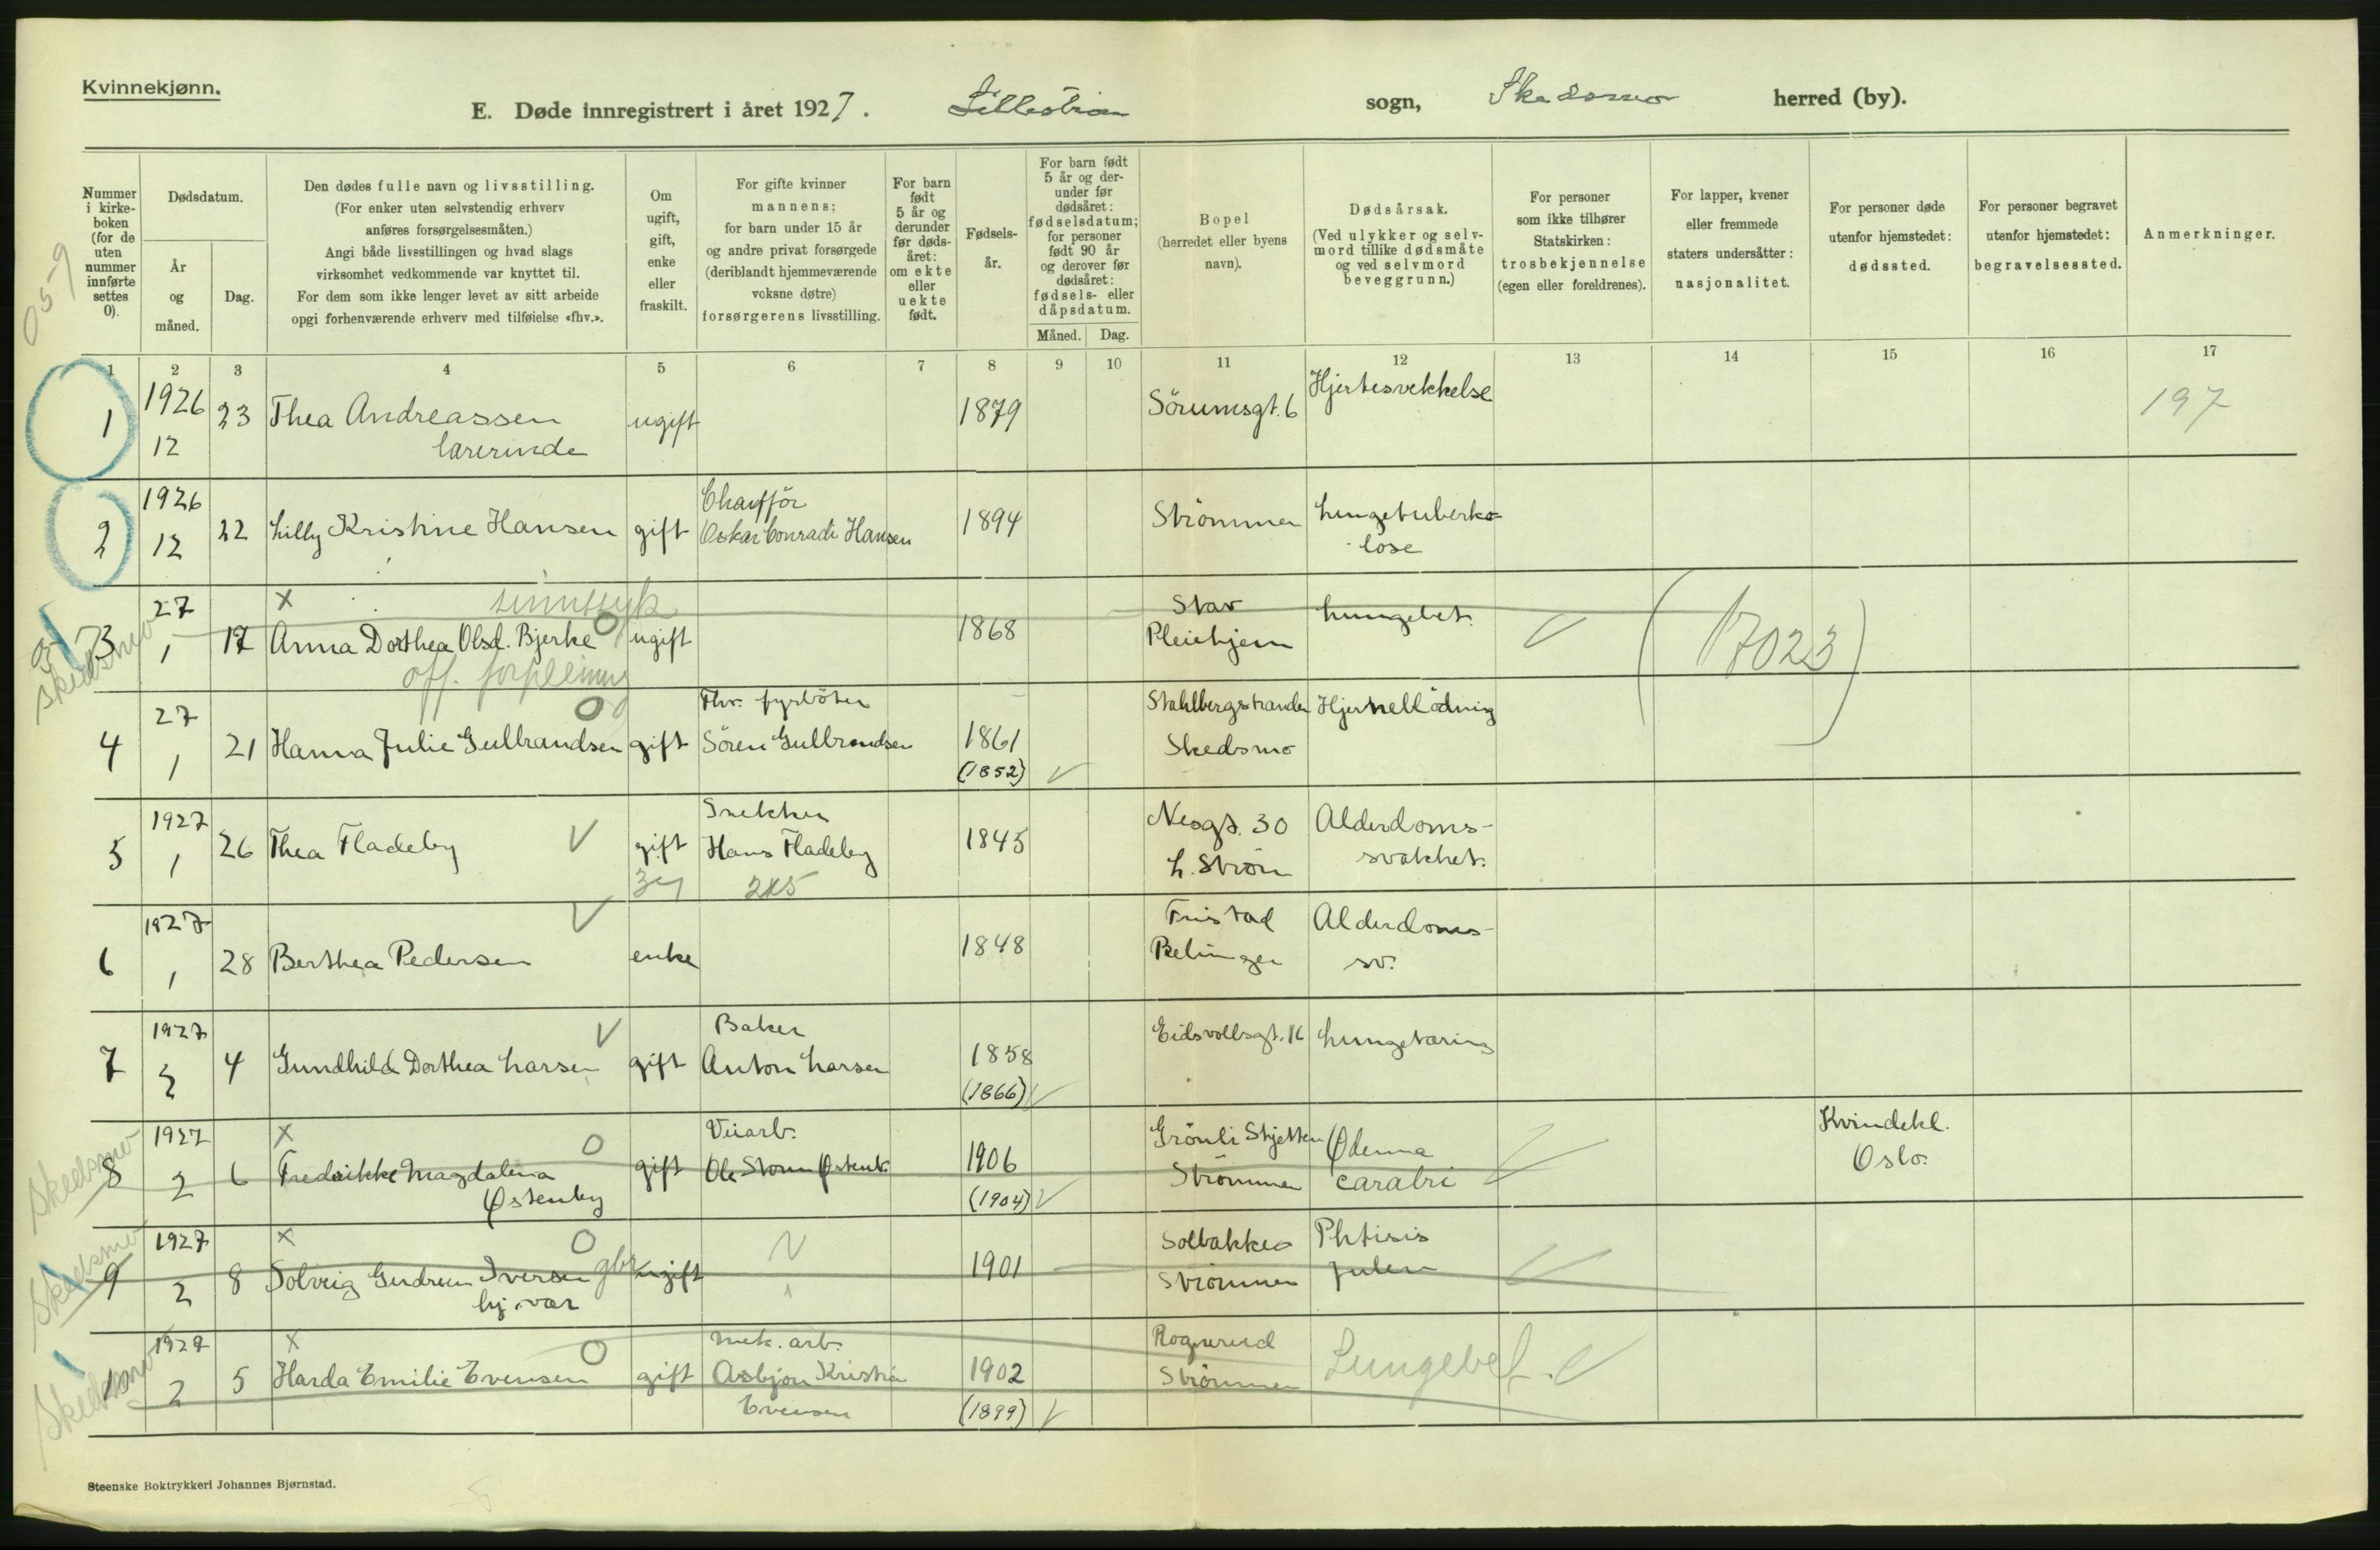 Kvinnekjønn.
E. Døde innregistrert i året 1927. Lillestrøm sogn, Skedsmo herred (by).
Nummer i kirke-boken (for de uten nummer innførte settes 0).
Dødsdatum.
År og måned.
Dag.
Den dødes fulle navn og livsstilling.
(For enker uten selvstendig erhverv
anføres forsørgelsesmåten.)
Angi både livsstillingen og hvad slags
virksomhet vedkommende var knyttet til.
For dem som ikke lenger levet av sitt arbeide
opgi forhenværende erhverv med tilføielse «fhv.».
Om ugift, gift, enke eller fraskilt.
For gifte kvinner
mannens;
for barn under 15 år
og andre privat forsørgede
(deriblandt hjemmeværende
voksne døtre)
forsørgerens livsstilling.
For barn født 5 år og derunder før døds-året: om ekte eller uekte født.
Fødsels-år.
For barn født 5 år og der-under før dødsåret: fødselsdatum; for personer født 90 år og derover før dødsåret: fødsels- eller dåpsdatum.
Måned. Dag.
Bopel
(herredet eller byens
navn).
Dødsårsak.
(Ved ulykker og selv-
mord tillike dødsmåte
og ved selvmord
beveggrunn.)
For personer
som ikke tilhører
Statskirken:
trosbekjennelse
(egen eller foreldrenes).
For lapper, kvener
eller fremmede
staters undersåtter:
nasjonalitet.
For personer døde
utenfor hjemstedet:
dødssted.
For personer begravet
utenfor hjemstedet:
begravelsessted.
Anmerkninger.
1 2 3 4 5 6 7 8 9 10 11 12 13 14 15 16 17
05-9
1 1926 12 23 Thea Andreassen ugift 1879 Sörumsgt. 6 Hjertesvekkelse 197
lærerinde
2 1926 12 22 Lilly Kristine Hansen gift Chafför 1894 Strömmen Lungetuberko-
Oskar Conradi Hansen
lose
Skedsmo
3 27 1 17 x sinnssyk
Anna Dorthea Olsd. Bjerke ugift 1868 Stav Lungebet. (17023)
Pleiehjem
off. forpleining
4 27 1 21 Hanna Julie Gulbrandsen gift Fhv. fyrböter 1861 Stahlbergstranden Hjernellödning
Sören Gulbrandsen
(1852) Skedsmo
5 1927 1 26 Thea Fladeby gift Snekker 1845 Nesgt. 30 Alderdoms-
Hans Fladeby
L. Ström svakhet.
6 1927 1 28 Berthea Pedersen enke 1848 Fristad Alderdoms-
sv.
7 1927 2 4 Gundhild Dorthea Larsen gift Baker 1858 Eidsvollsgt. 16 Lungetæring
Anton Larsen
(1866)
Skedsmo
8 1927 2 6 x Fredrikke Magdalena gift Veiarb. 1906 Grönli Skjetten Ødema Kvindekl.
Østenby
(1904) Strömmen Oslo.
Skedsmo
9 1927 2 8 x Solveig Gudrun Iversen ugift 1901 Solbakken Phtisis
hj. vær Strömmen
Skedsmo
10 1927 2 5 x Harda Emilie Evensen gift mek. arb. 1902 Rognerud Lungebet.
Asbjörn Kristian
Evensen (1899) Strömmen
Steenske Boktrykkeri Johannes Bjørnstad.